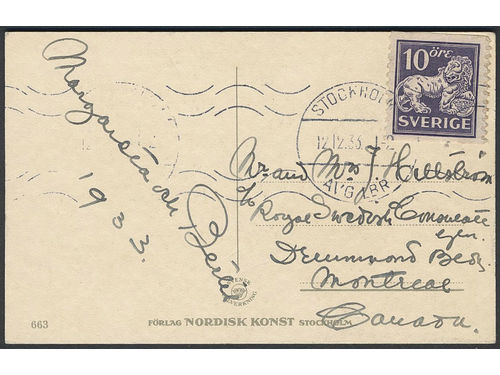 Margareta och
Bertil
1933.
10 ÖRE
SVERIGE
STOCKHOLM
12.12.33
AVG. ABR.
Mr and Mrs J Hellström
c/o Royal Swedish Consulate
gen.
Drummond Bldg
Montreal
Canada.
SVENSK
TILLVERKNING
663
FÖRLAG NORDISK KONST STOCKHOLM